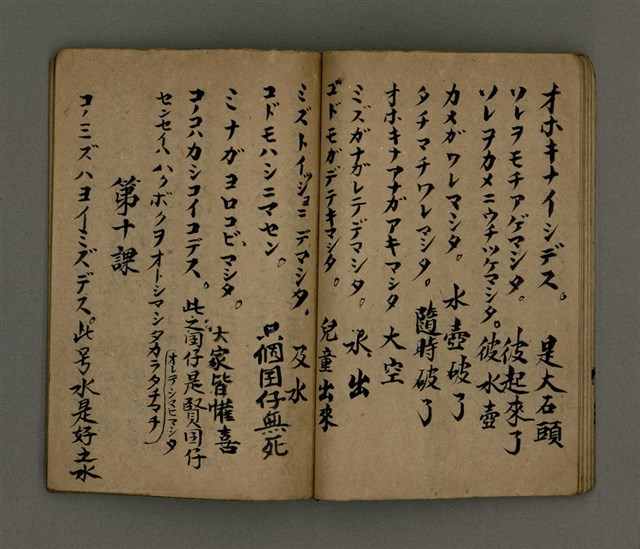 オホキナイシデス。 是大石頭
ソレヲモチアゲマシタ。 彼起來了
ソレヲカメニウチツケマシタ。彼水壺
カメガワレマシタ。 水壺破了
タチマチワレマシタ。 隨時破了
オホキナアナガアキマシタ 大空
ミズガナガレテデマシタ。 水出
コドモガデテキマシタ。 兒童出來
ミズトイッショニデマシタ。 及水
コドモハシニマセン。 只個囝仔無死
ミナガヨロコビマシタ。 大家皆懽喜
コノコハカシコイコデス。此之囝仔是賢囝仔
センセイハハクボクヲオトシマシタカラタチマチ
オレテシマヒマシタ
第十課
コノミズハヨイミズデス。此号水是好之水